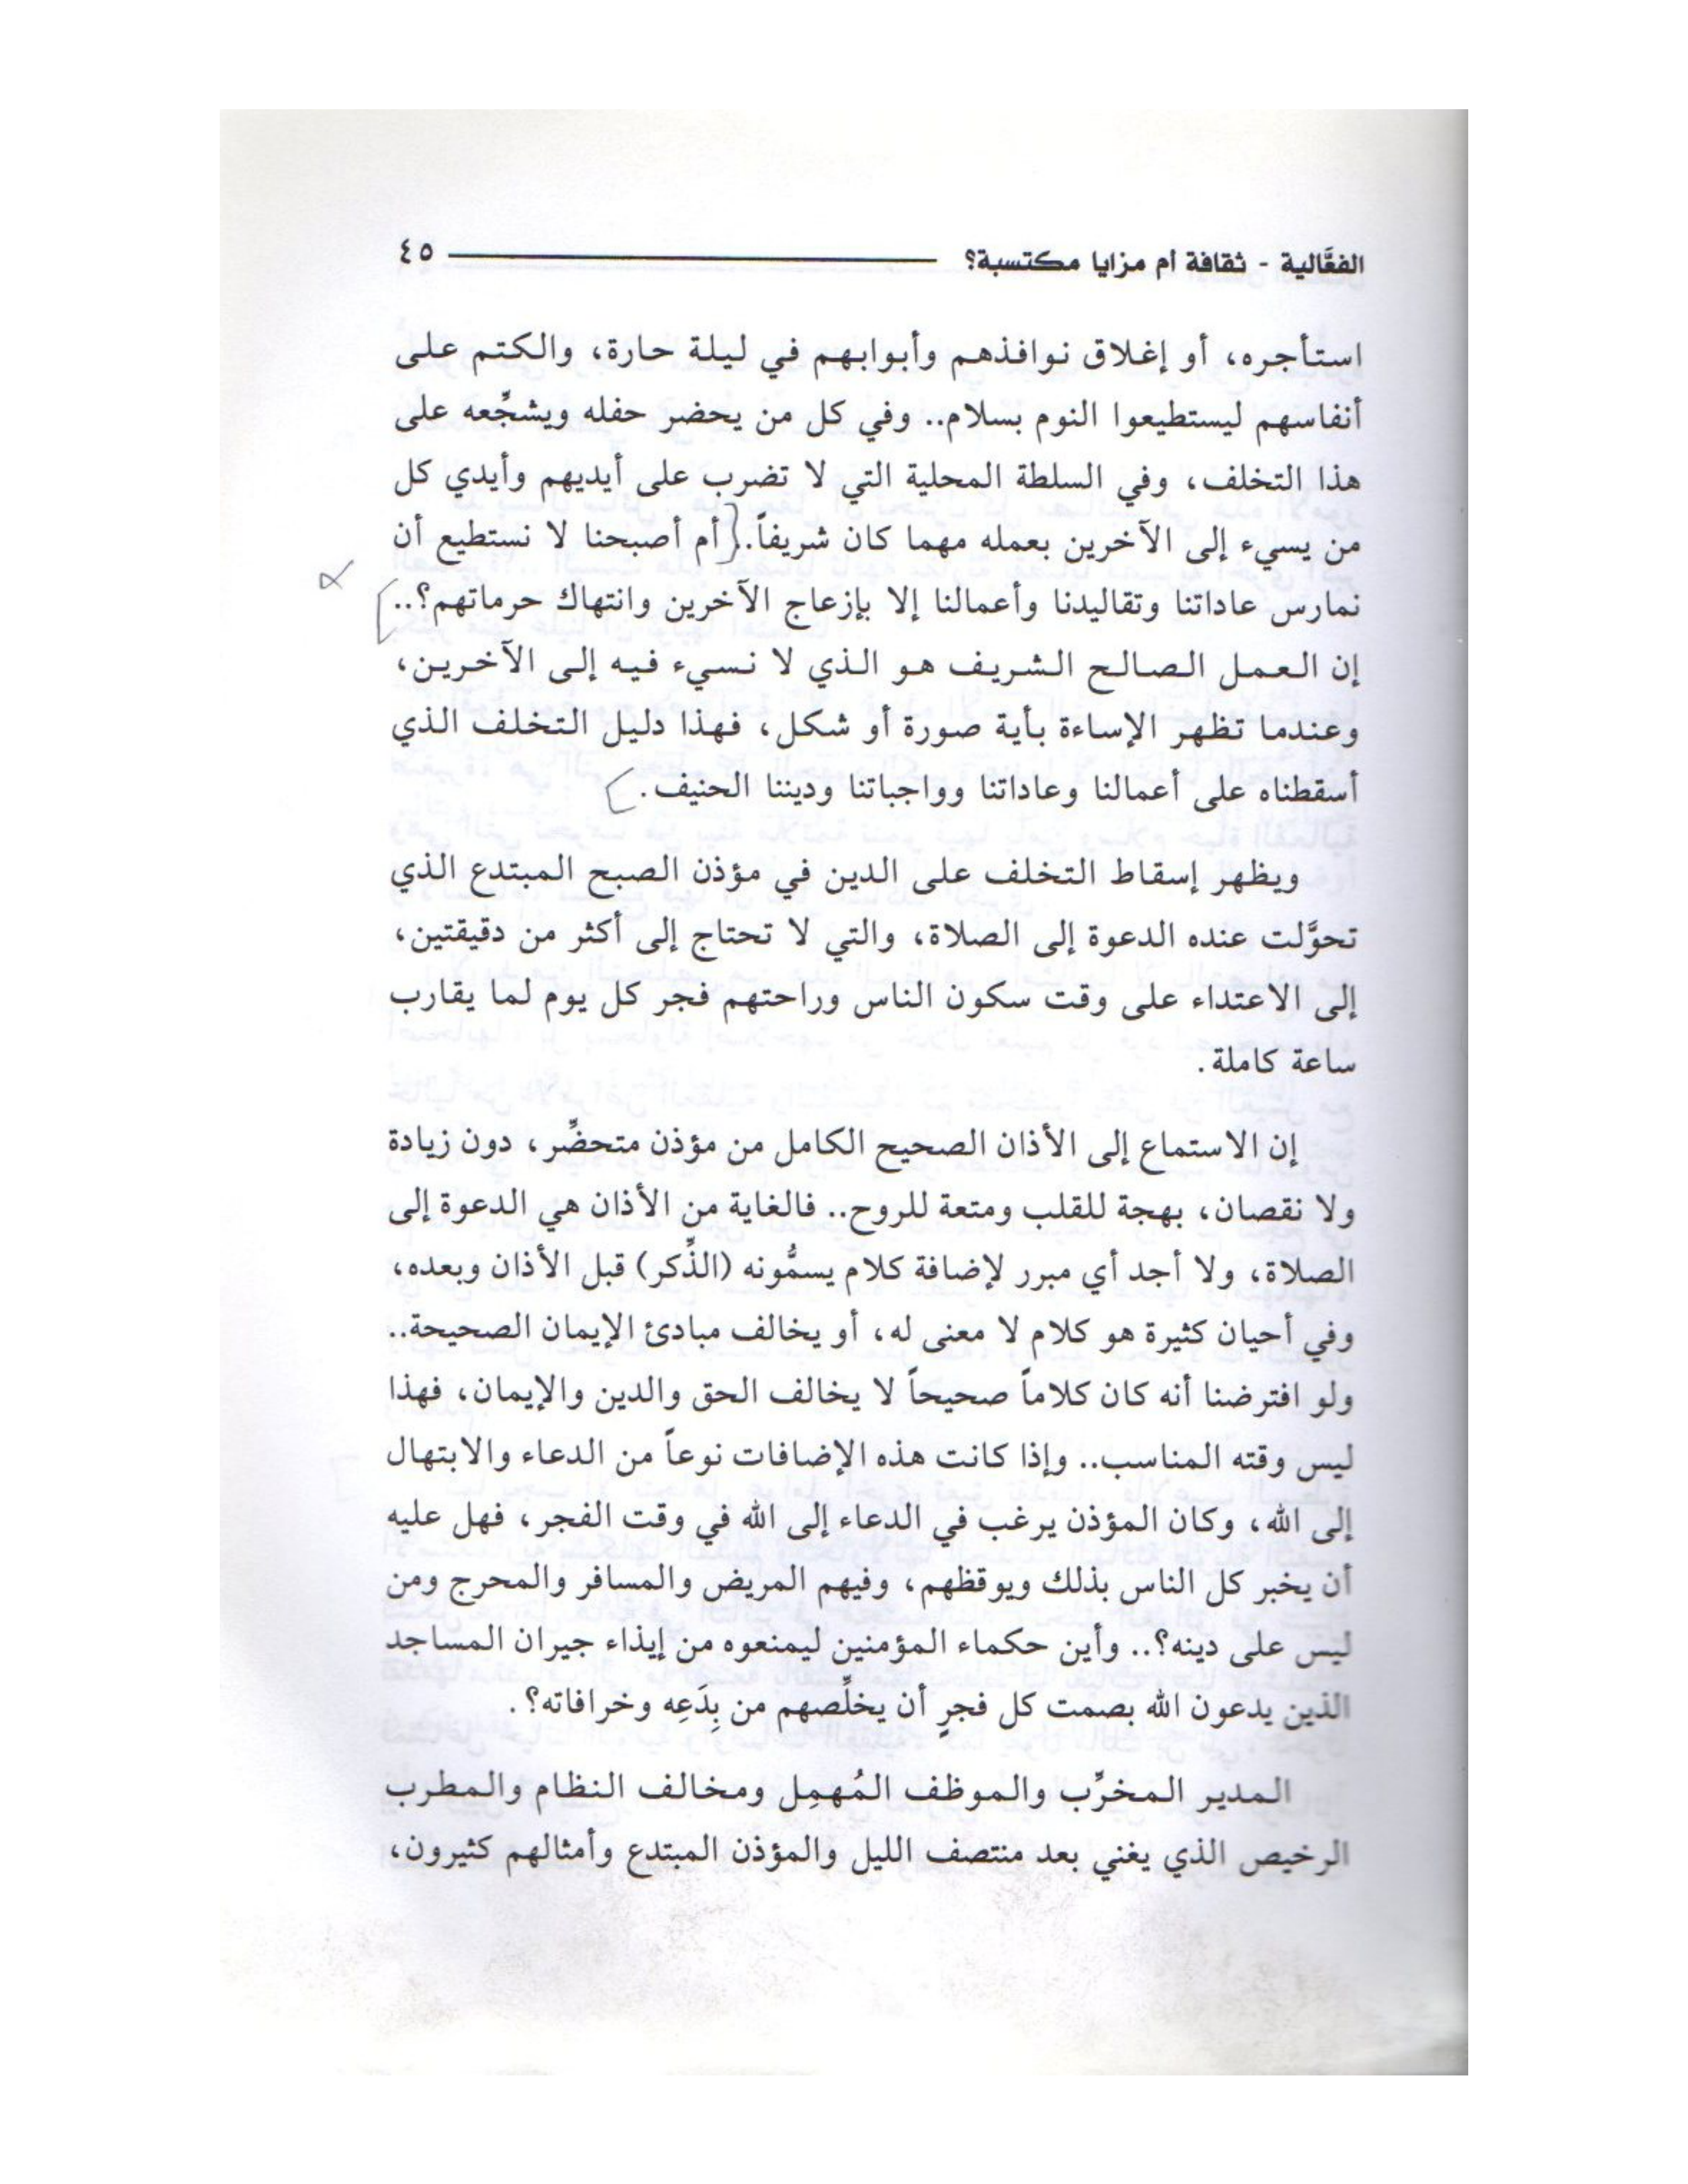 الفعَّالية - ثقافة أم مزايا مكتسبة؟ ٤٥
استأجره، أو إغلاق نوافذهم وأبوابهم في ليلة حارة، والكتم على
أنفاسهم ليستطيعوا النوم بسلام.. وفي كل من يحضر حفله ويشجِّعه على
هذا التخلف، وفي السلطة المحلية التي لا تضرب على أيديهم وأيدي كل
من يسيء إلى الآخرين بعمله مهما كان شريفاً.. أم أصبحنا لا نستطيع أن
نمارس عاداتنا وتقاليدنا وأعمالنا إلا بإزعاج الآخرين وانتهاك حرماتهم؟..
إن العمل الصالح الشريف هو الذي لا نسيء فيه إلى الآخرين،
وعندما تظهر الإساءة بأية صورة أو شكل، فهذا دليل التخلف الذي
أسقطناه على أعمالنا وعاداتنا وواجباتنا وديننا الحنيف.
ويظهر إسقاط التخلف على الدين في مؤذن الصبح المبتدع الذي
تحوَّلت عنده الدعوة إلى الصلاة، والتي لا تحتاج إلى أكثر من دقيقتين،
إلى الاعتداء على وقت سكون الناس وراحتهم فجر كل يوم لما يقارب
ساعة كاملة.
إن الاستماع إلى الأذان الصحيح الكامل من مؤذن متحضِّر، دون زيادة
ولا نقصان، بهجة للقلب ومتعة للروح.. فالغاية من الأذان هي الدعوة إلى
الصلاة، ولا أجد أي مبرر لإضافة كلام يسمُّونه (الذِّكر) قبل الأذان وبعده،
وفي أحيان كثيرة هو كلام لا معنى له، أو يخالف مبادئ الإيمان الصحيحة..
ولو افترضنا أنه كان كلاماً صحيحاً لا يخالف الحق والدين والإيمان، فهذا
ليس وقته المناسب.. وإذا كانت هذه الإضافات نوعاً من الدعاء والابتهال
إلى الله، وكان المؤذن يرغب في الدعاء إلى الله في وقت الفجر، فهل عليه
أن يخبر كل الناس بذلك ويوقظهم، وفيهم المريض والمسافر والمحرج ومن
ليس على دينه؟.. وأين حكماء المؤمنين ليمنعوه من إيذاء جيران المساجد
الذين يدعون الله بصمت كل فجرٍ أن يخلِّصهم من بِدَعِه وخرافاته؟.
المدير المخرِّب والموظف المُهمِل ومخالف النظام والمطرب
الرخيص الذي يغني بعد منتصف الليل والمؤذن المبتدع وأمثالهم كثيرون،